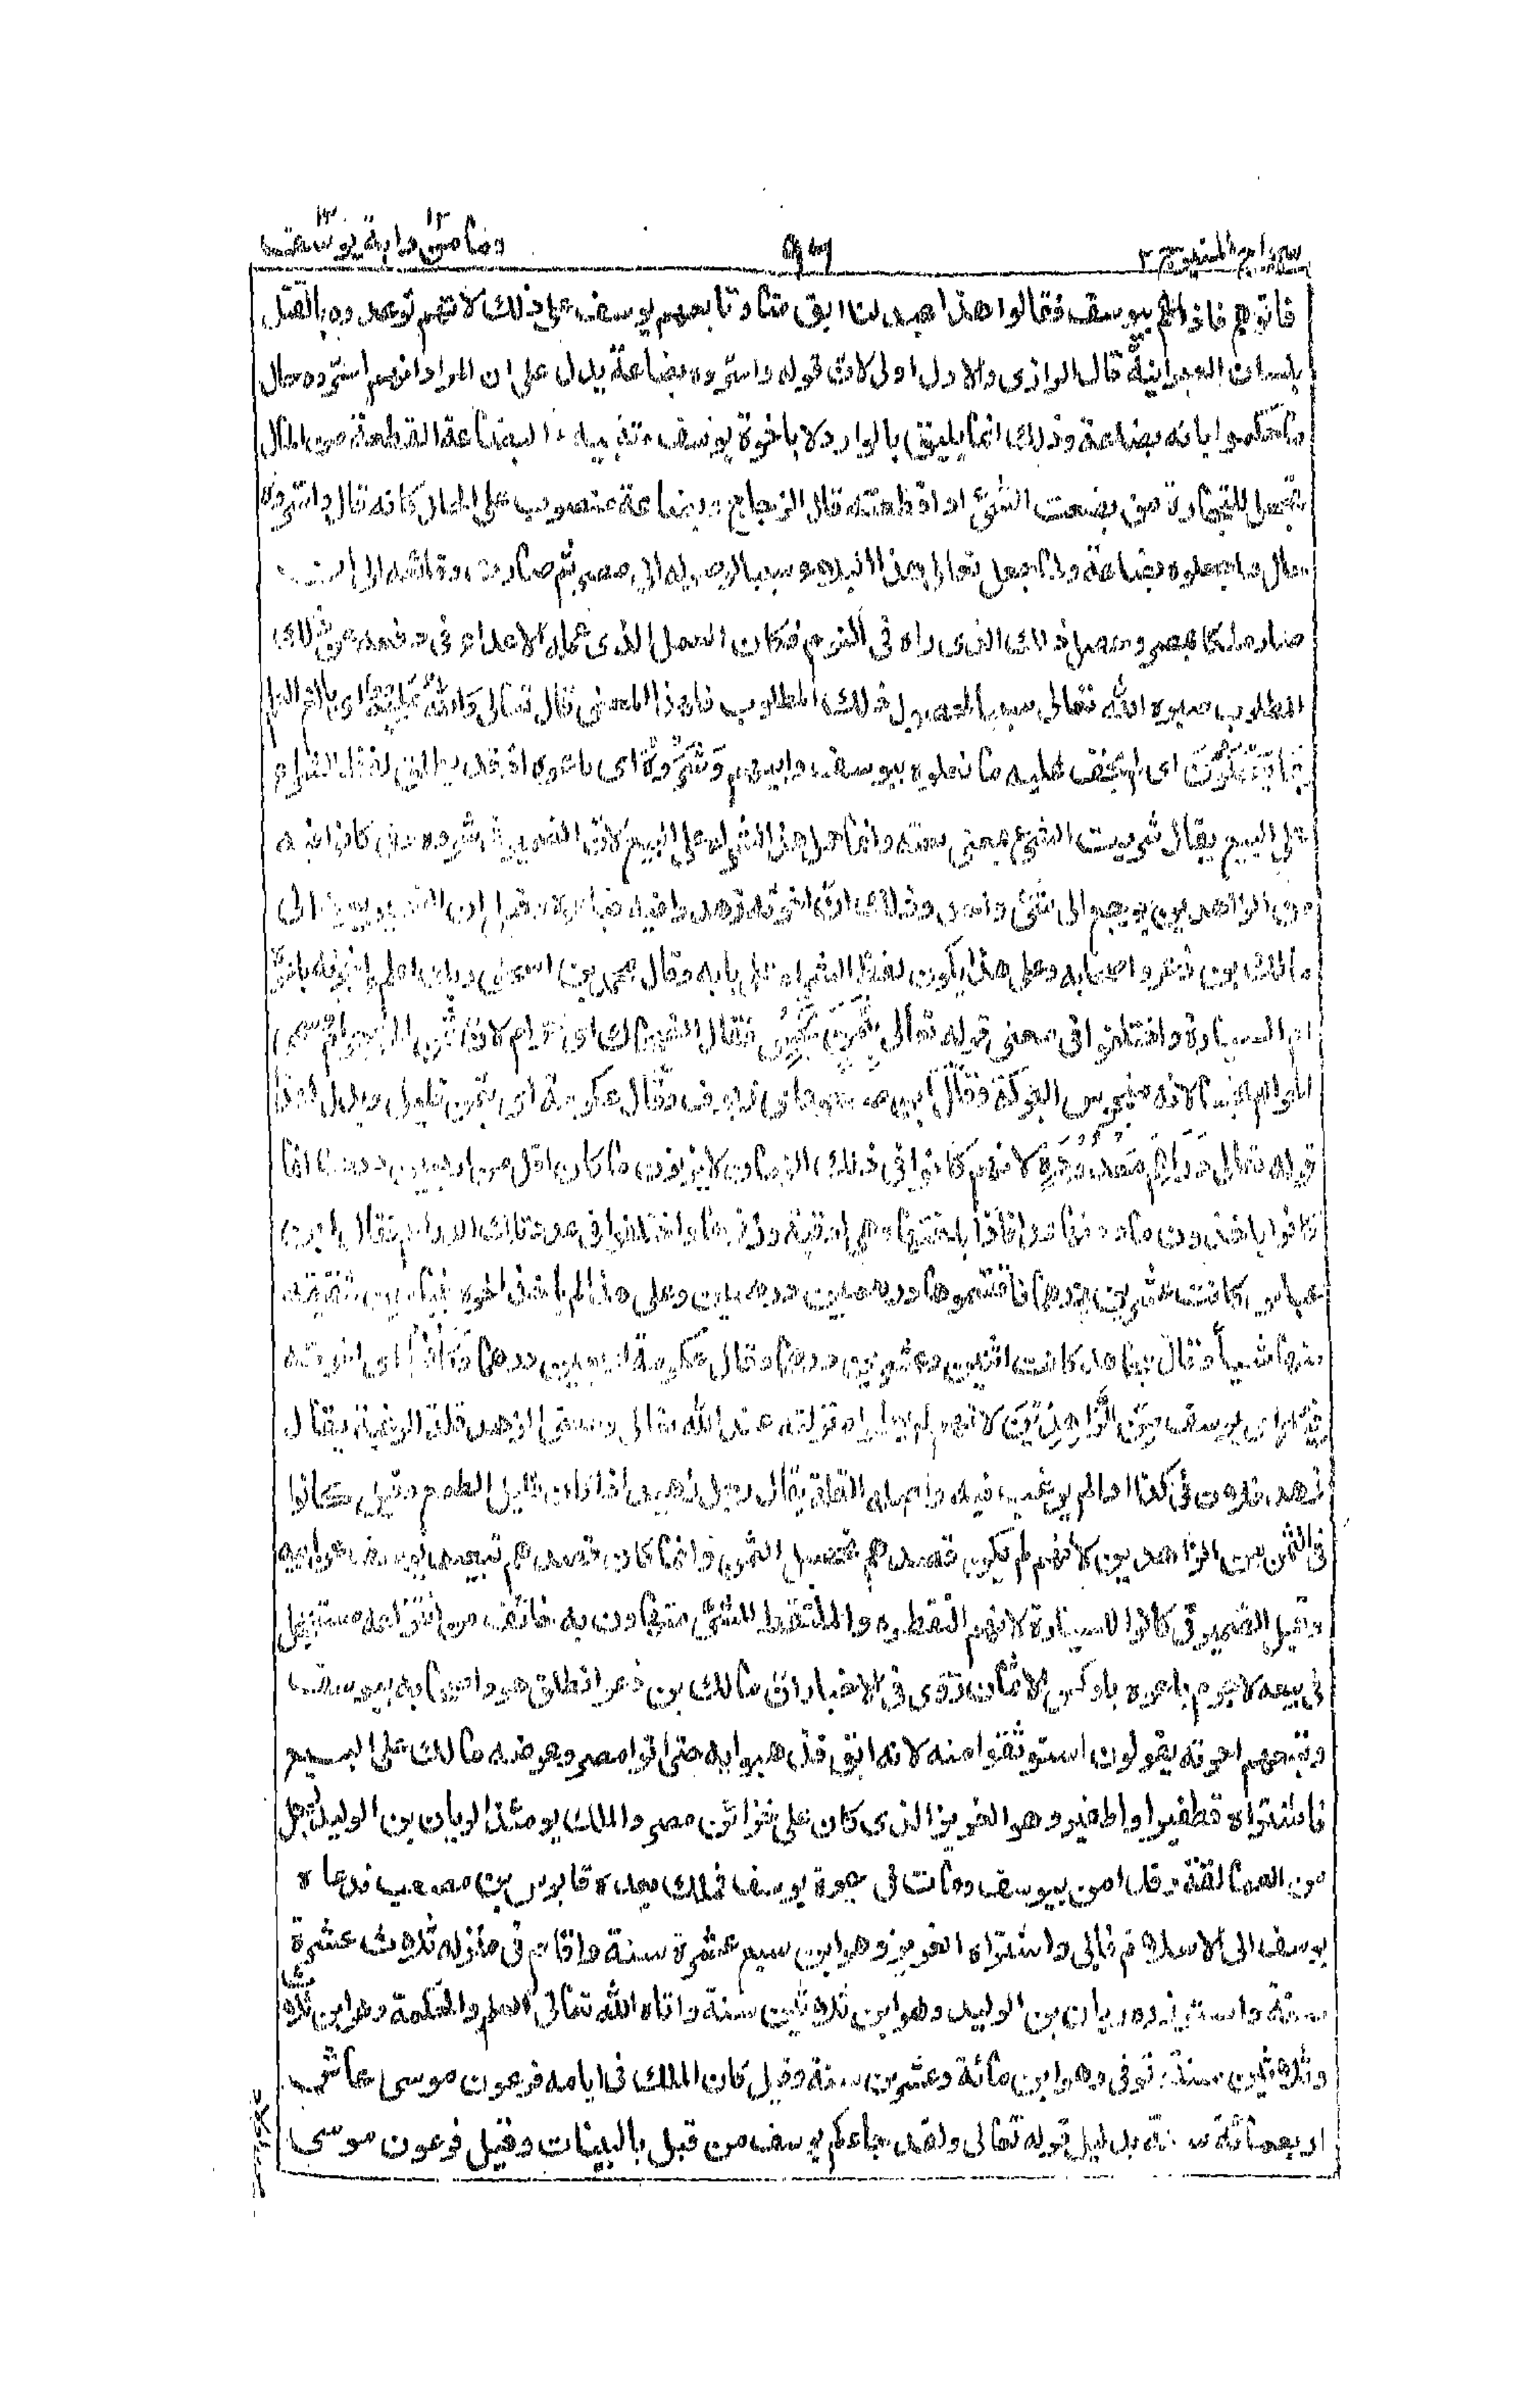 سراج المنير ج ٢
٩٦
وما من دابة يوسف
فاتوهم فاذا هم بيوسف فقالوا هذا عبدنا ابق منا وتابعهم يوسف على ذلك لانهم توعدوه بالقتل
بلسان العبرانية قال الرازى والاول اولى لان قوله واسروه بضاعة يدل على ان المراد انهم اسروه حال
ما حكموا بانه بضاعة وذلك انما يليق بالوارد لا باخوة يوسف تنبيه البضاعة القطعة من المال
تجعل للتجارة من بضعت الشئ اذا قطعته قال الزجاج وبضاعة منصوب على الحال كانه قال واسروه
حال ما جعلوه بضاعة ولما جعل تعالى هذا البلاء سببا لوصوله الى مصر ثم صارت وقائعه الى ان
صار ملكا بمصر وحصل ذلك الذى راه فى النوم فكان العمل الذى عمله الاعداء فى دفعه عن ذلك
المطلوب صيره الله تعالى سببا لحصول ذلك المطلوب فلهذا المعنى قال تعالى وَاللّٰهُ عَلِيْمٌ اى بالغ العلم
بِمَا يَعْمَلُوْنَ اى لم يخف عليه ما فعلوه بيوسف وابيهم وَشَرَوْهُ اى باعوه اذ قد يطلق لفظ الشراء
على البيع يقال شريت الشئ بمعنى بعته وانما حمل هذا الشراء على البيع لان الضمير فى شروه وفى كانوا فيه
من الزاهدين يرجع الى شئ واحد وذلك ان اخوته زهدوا فيه فباعوه وقيل ان الضمير يعود الى
مالك بن ذعر واصحابه وعلى هذا يكون لفظ الشراء على بابه وقال محمد بن اسحاق وربك اعلم اخوته باعوه
ام السيارة واختلفوا فى معنى قوله تعالى بِثَمَنٍ بَخْسٍ فقال الضحاك اى حرام لان ثمن الحر حرام وسمى
الحرام بخسا لانه مبخوس البركة وقال ابن مسعود اى زيوف وقال عكرمة اى بثمن قليل ويدل لهذا
قوله تعالى دَرَاهِمَ مَعْدُوْدَةٍ لانهم كانوا فى ذلك الزمان لا يزنون ما كان اقل من اربعين درهما انما
كانوا ياخذون ما دونها عدا فاذا بلغتها وهى اوقية وزنوها واختلفوا فى عدد تلك الدراهم فقال ابن
عباس كانت عشرين درهما فاقتسموها درهمين درهمين وعلى هذا لم ياخذ اخوه بنيامين شقيقه
منها شيأ وقال مجاهد كانت اثنين وعشرين درهما وقال عكرمة اربعين درهما وَكَانُوْا اى اخوته
فِيْهِ اى يوسف مِنَ الزَّاهِدِيْنَ لانهم لم يعلموا منزلته عند الله تعالى ومعنى الزهد قلة الرغبة يقال
زهد فلان فى كذا اذا لم يرغب فيه واصله القلة يقال رجل زهيد اذا كان قليل الطمع وقيل كانوا
فى الثمن من الزاهدين لانهم لم يكن قصدهم تحصيل الثمن وانما كان قصدهم تبعيد يوسف عن ابيه
وقيل الضمير فى كانوا للسيارة لانهم التقطوه والملتقط للشئ متهاون به خائف من انتزاعه مستعجل
فى بيعه لاجرم باعوه باوكس الاثمان روى فى الاخبار ان مالك بن ذعر انطلق هو واصحابه بيوسف
وتبعهم اخوته يقولون استوثقوا منه لانه ابق فذهبوا به حتى اتوا مصر وعرضه مالك على البيع
فاشتراه قطفير او اطفير وهو العزيز الذى كان على خزائن مصر والملك يومئذ الريان بن الوليد رجل
من العمالقة وقد امن بيوسف ومات فى حيوة يوسف فملك بعده قابوس بن مصعب فدعاه
يوسف الى الاسلام فابى واشتراه العزيز وهو ابن سبع عشرة سنة واقام فى منزله ثلاث عشرة
سنة واستوزره ريان بن الوليد وهو ابن ثلاثين سنة واتاه الله تعالى العلم والحكمة وهو ابن ثلاث
وثلاثين سنة وتوفى وهو ابن مائة وعشرين سنة وقيل كان الملك فى ايامه فرعون موسى عاش
اربعمائة سنة بدليل قوله تعالى ولقد جاءكم يوسف من قبل بالبينات وقيل فرعون موسى